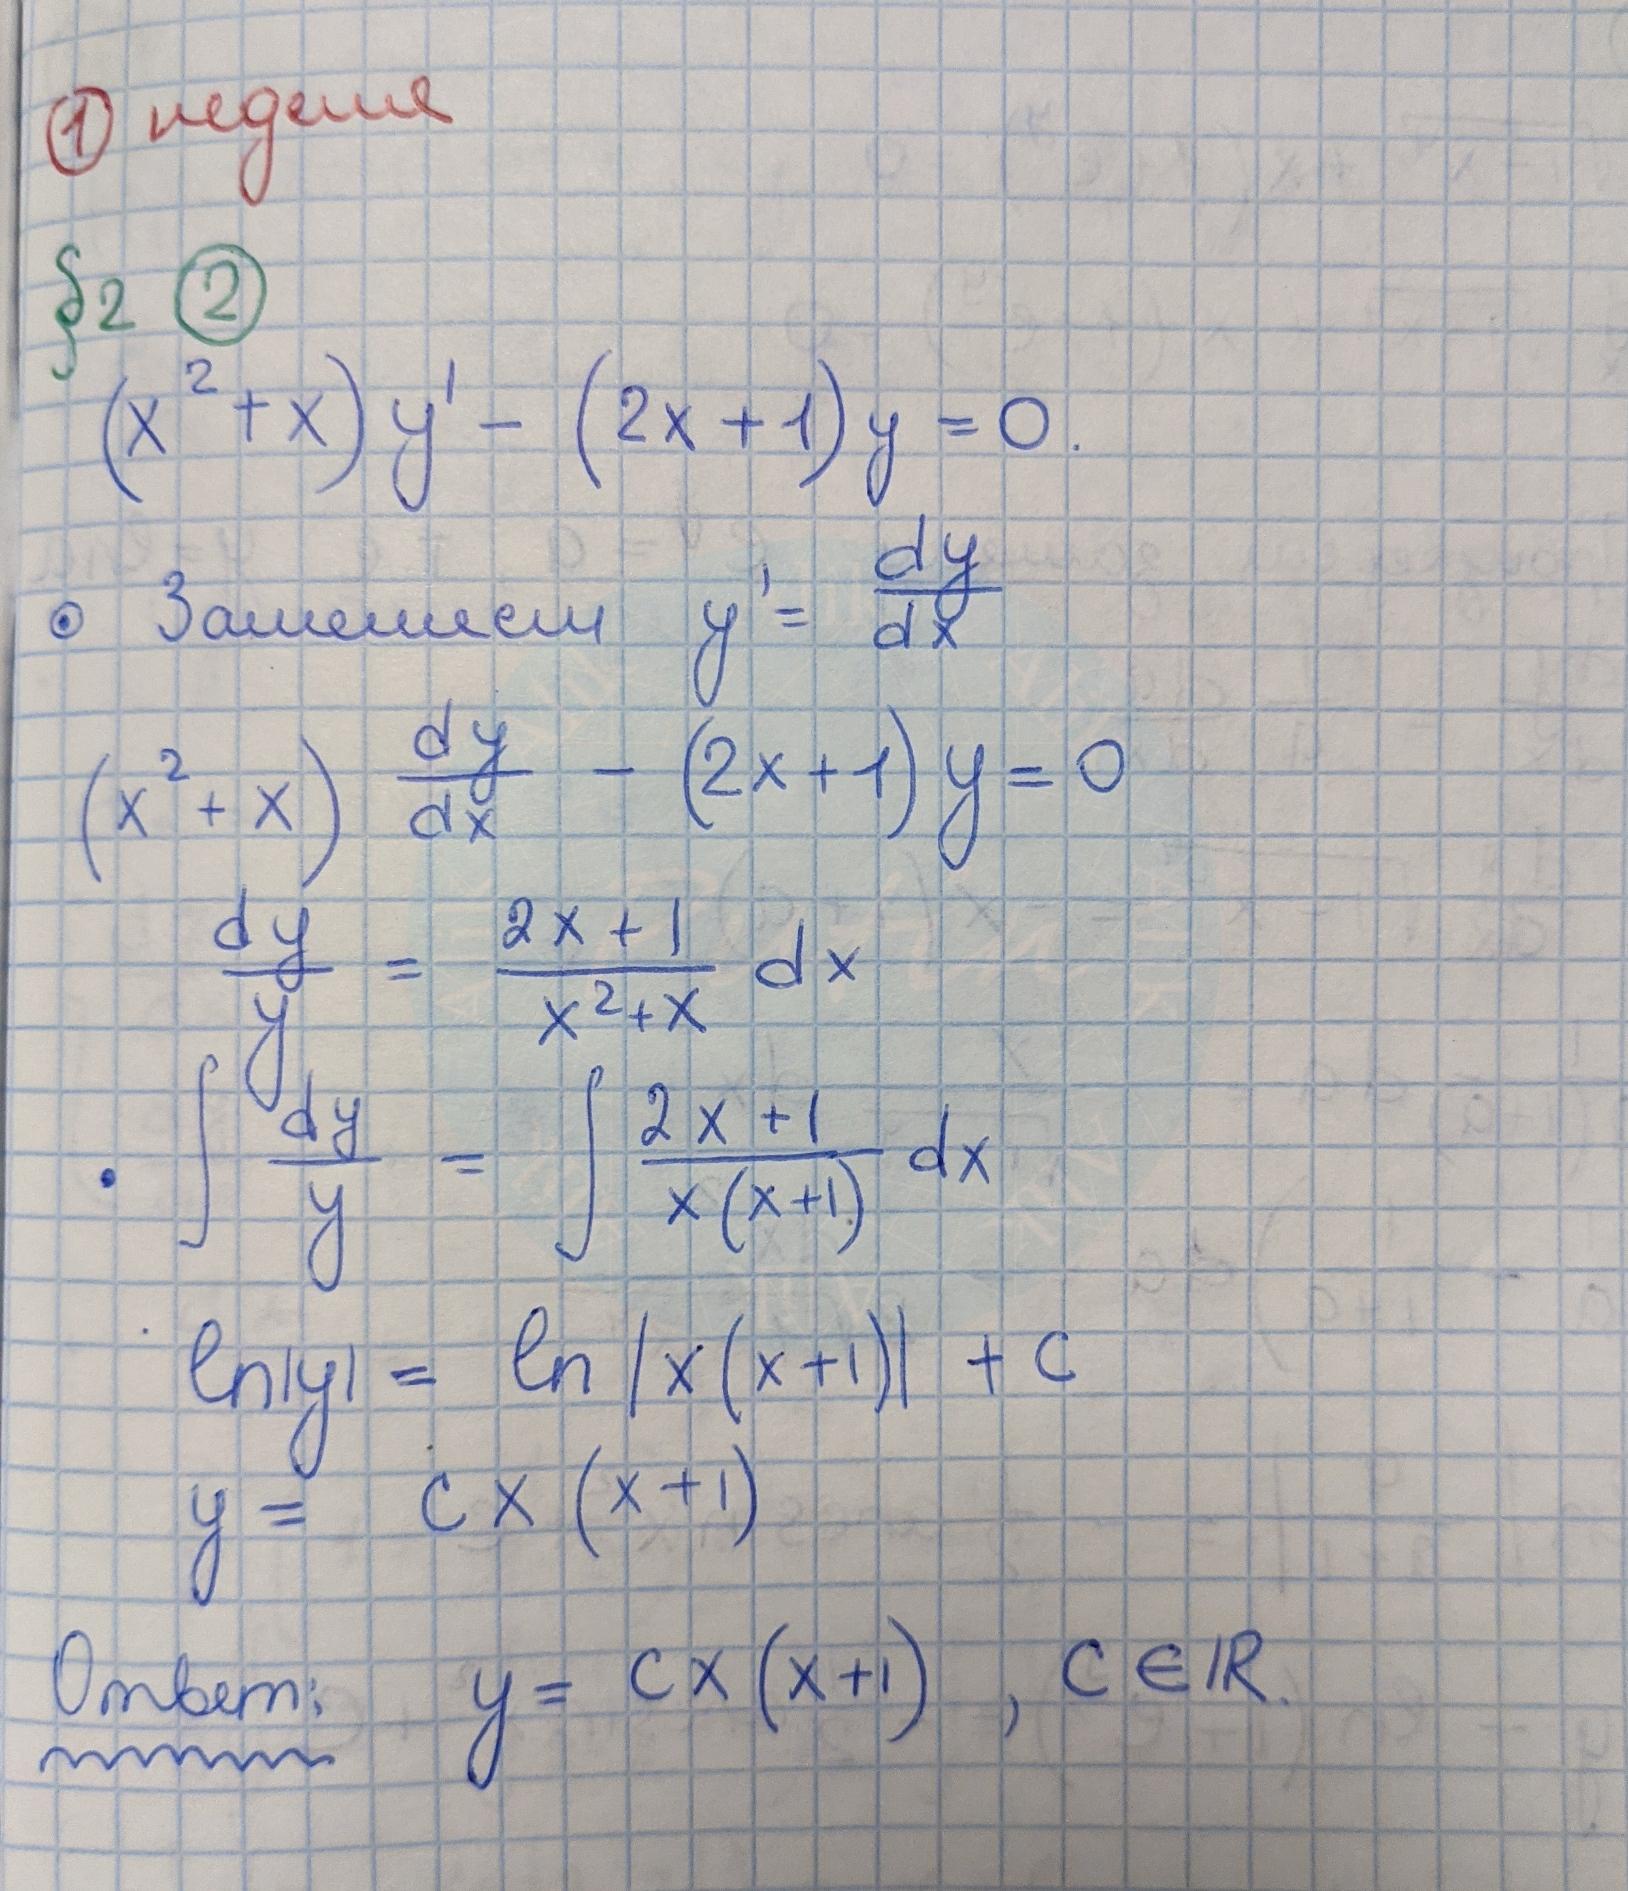 ① неделя
§2 ②
(x² + x) y' − (2x + 1) y = 0.
⊙ Заменим y' = dy/dx
(x² + x) dy/dx − (2x + 1) y = 0
dy/y = (2x + 1)/(x² + x) dx
• ∫ dy/y = ∫ (2x + 1)/(x(x + 1)) dx
ln|y| = ln |x(x + 1)| + C
y = Cx (x + 1)
Ответ: y = Cx (x + 1) , C ∈ ℝ.